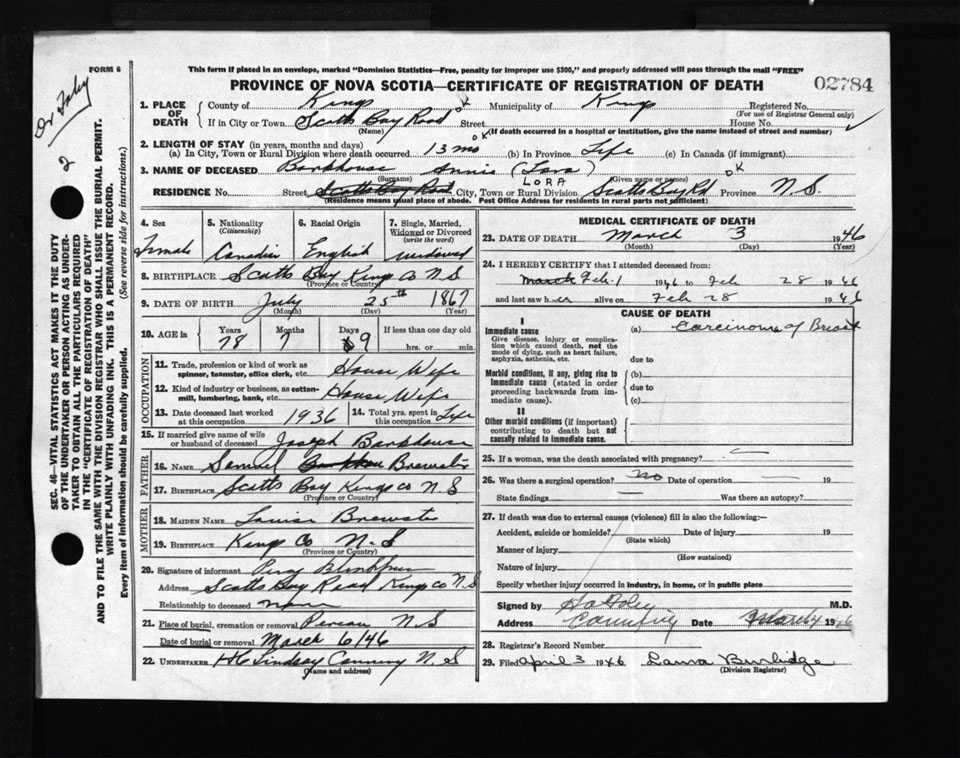 FORM 6
This form if placed in an envelope, marked "Dominion Statistics—Free, penalty for improper use $300," and properly addressed will pass through the mail "FREE"
PROVINCE OF NOVA SCOTIA—CERTIFICATE OF REGISTRATION OF DEATH
02784
Dr Foley
2
SEC. 46—VITAL STATISTICS ACT MAKES IT THE DUTY
OF THE UNDERTAKER OR PERSON ACTING AS UNDER-
TAKER TO OBTAIN ALL THE PARTICULARS REQUIRED
IN THE "CERTIFICATE OF REGISTRATION OF DEATH"
AND TO FILE THE SAME WITH THE DIVISION REGISTRAR WHO SHALL ISSUE THE BURIAL PERMIT.
WRITE PLAINLY WITH UNFADING INK. THIS IS A PERMANENT RECORD.
Every item of information should be carefully supplied. (See reverse side for instructions.)
1. PLACE OF DEATH County of Kings Municipality of Kings Registered No.
(For use of Registrar General only)
If in City or Town Scotts Bay Road OK Street House No.
(Name) (If death occurred in a hospital or institution, give the name instead of street and number)
2. LENGTH OF STAY (in years, months and days)
(a) In City, Town or Rural Division where death occurred 13 mo OK (b) In Province Life (c) In Canada (if immigrant)
3. NAME OF DECEASED Barkhouse Annis (Lora) OK
(Surname) LORA (Given name or names)
RESIDENCE No. Street Scotts Bay Road City, Town or Rural Division Scotts Bay Rd Province N.S.
(Residence means usual place of abode. Post Office Address for residents in rural parts not sufficient)
4. Sex Female
5. Nationality (Citizenship) Canadian
6. Racial Origin English
7. Single, Married, Widowed or Divorced (write the word) widowed
8. BIRTHPLACE Scotts Bay Kings Co N S
(Province or Country)
9. DATE OF BIRTH July 25th 1867
(Month) (Day) (Year)
10. AGE in Years 78 Months 7 Days 9 If less than one day old hrs. or min.
OCCUPATION
11. Trade, profession or kind of work as spinner, teamster, office clerk, etc. House Wife
12. Kind of industry or business, as cotton-mill, lumbering, bank, etc. House Wife
13. Date deceased last worked at this occupation 1936 14. Total yrs. spent in this occupation Life
15. If married give name of wife or husband of deceased Joseph Barkhouse
FATHER
16. NAME Samuel Barkhouse Brewster
17. BIRTHPLACE Scotts Bay Kings co N. S
(Province or Country)
MOTHER
18. MAIDEN NAME Louise Brewster
19. BIRTHPLACE Kings Co N. S
(Province or Country)
20. Signature of informant Percy
Address Scotts Bay Road Kings co N.S
Relationship to deceased none
21. Place of burial, cremation or removal Pereau N S
Date of burial or removal March 6/46
22. UNDERTAKER Lindsay Canning N. S
(Name and address)
MEDICAL CERTIFICATE OF DEATH
23. DATE OF DEATH March 3 1946
(Month) (Day) (Year)
24. I HEREBY CERTIFY that I attended deceased from:
March Feb. 1 1946 to Feb 28 1946
and last saw her alive on Feb 28 1946
CAUSE OF DEATH
I
Immediate cause (a) Carcinoma of Breast
Give disease, injury or complication which caused death, not the mode of dying, such as heart failure, asphyxia, asthenia, etc.
due to
Morbid conditions, if any, giving rise to immediate cause (stated in order proceeding backwards from immediate cause).
(b)
due to
(c)
II
Other morbid conditions (if important) contributing to death but not causally related to immediate cause.
25. If a woman, was the death associated with pregnancy?
26. Was there a surgical operation? No Date of operation 19
State findings Was there an autopsy?
27. If death was due to external causes (violence) fill in also the following:—
Accident, suicide or homicide? Date of injury 19
(State which)
Manner of injury
(How sustained)
Nature of injury
Specify whether injury occurred in industry, in home, or in public place
Signed by Foley M.D.
Address Canning Date March 4 1946
28. Registrar's Record Number
29. Filed April 3 1946 Laura Burbidge
(Division Registrar)